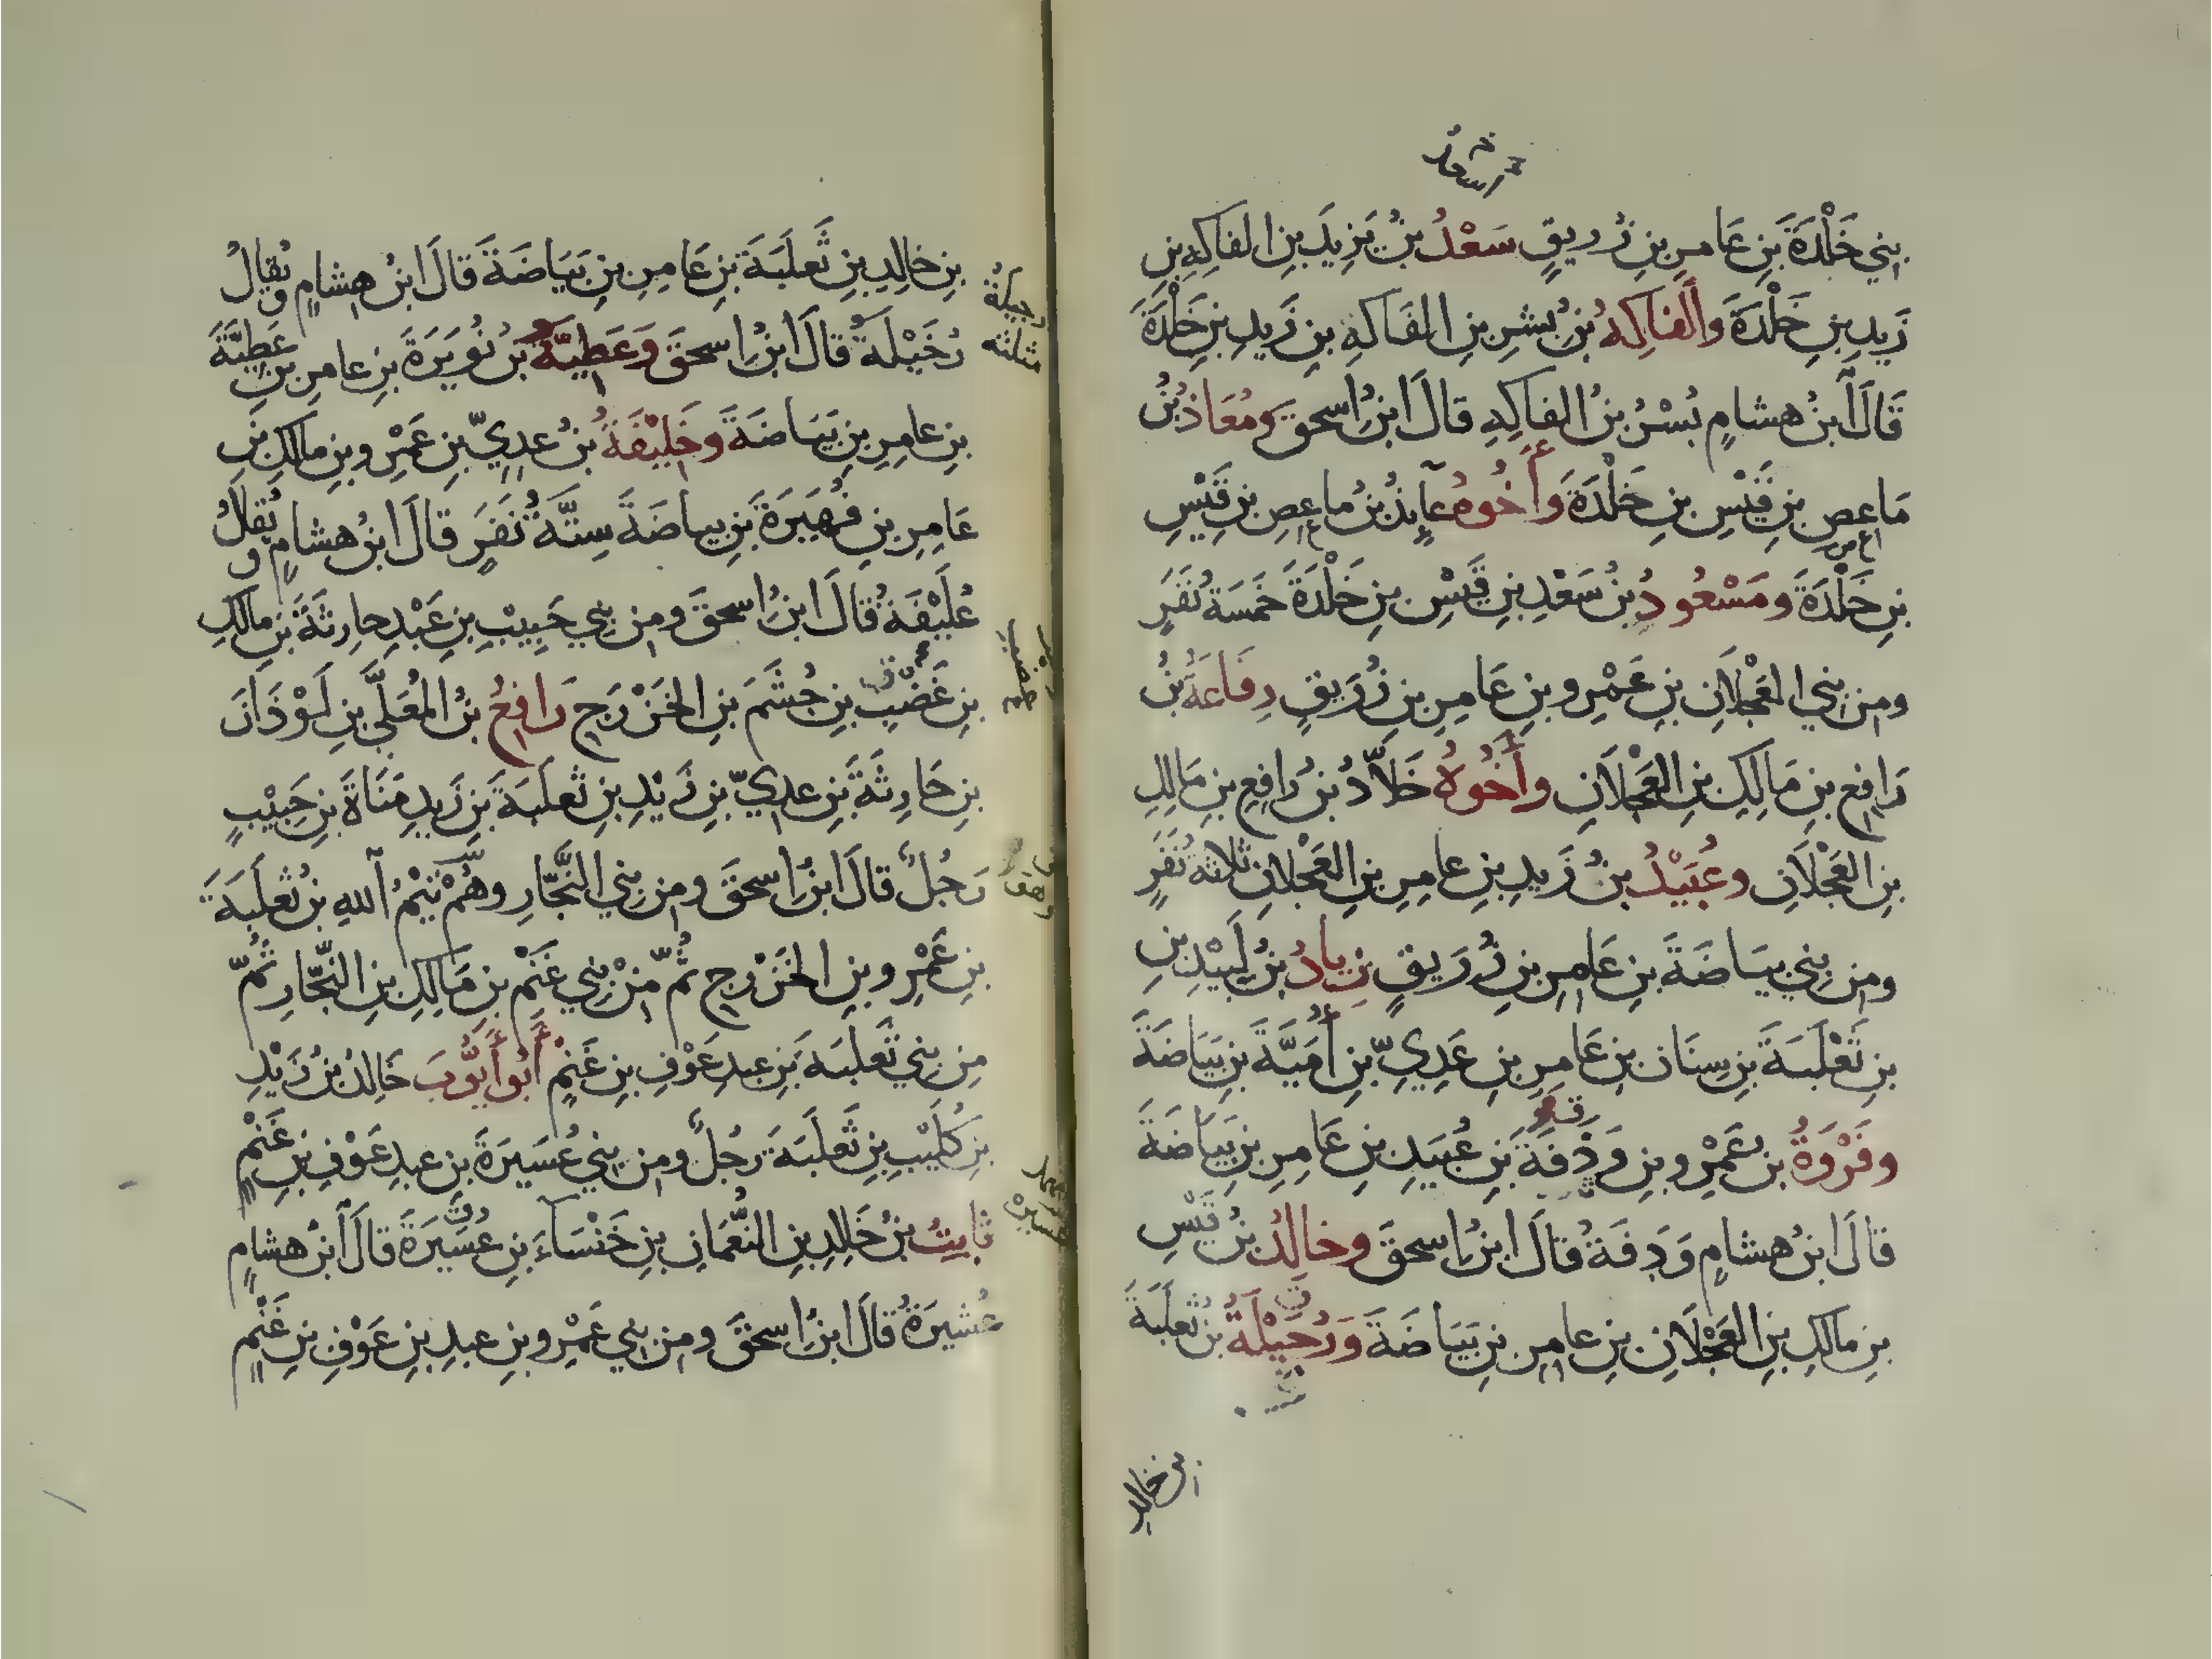 اسعد
بني خَلْدَةَ بنِ عَامرِ بنِ زُريقٍ سَعْدُ بنُ يَزِيدَ بنِ الفَاكِهِ بنِ
زَيدِ بنِ خَلْدَةَ وَالفاكِهُ بنُ بُشرِ بنِ الفَاكهِ بنِ زَيدِ بنِ خَلْدَةَ
قَالَ ابنُ هشامٍ بُسْرُ بنُ الفاكِهِ قالَ ابنُ اسحقَ ومُعَاذُ بنُ
مَاعِصِ بنِ قَيْسِ بنِ خَلْدَةَ وَأَخُوهُ عآيِذُ بنُ ماعِصِ بنِ قَيْسِ
بنِ خَلْدَةَ ومَسْعُودُ بنُ سَعْدِ بنِ قَيْسِ بنِ خَلْدَةَ خَمسَةُ نَفَرٍ
ومن بَنِي العَجْلَانِ بنِ عَمْرِو بنِ عَامِرِ بنِ زُرَيقٍ رِفَاعَةُ بنُ
رَافِعِ بنِ مَالِكِ بنِ العَجْلَانِ وأَخُوهُ خَلَّادُ بنُ رَافِعِ بنِ مَالِكِ
بنِ العَجْلَانِ وعُبَيْدُ بنُ زَيدِ بنِ عامِرِ بنِ العَجْلانِ ثلاثةُ نَفَرٍ
ومن بَنِي بيَاضَةَ بنِ عَامِرِ بنِ زُرَيقٍ زِيادُ بنُ لَبِيْدِ بنِ
بنِ ثَعْلَبَةَ بنِ سِنَان بنِ عَامِرِ بنِ عَدِيِّ بنِ أُمَيَّةَ بنِ بَيَاضَةَ
وفَرْوَةُ بنُ عَمْرِو بنِ وَذْفَةَ بنِ عُبَيدِ بنِ عَامِرِ بنِ بَيَاضَةَ
قالَ ابنُ هشامٍ وَدِفَةُ قالَ ابنُ اسحقَ وخالِدُ بنُ قَيْسِ
بنِ مالكِ بنِ العَجْلَانِ بنِ عامِرِ بنِ بَيَاضَةَ وَرُحَيْلَةُ بن ثعلَبَةَ
بن خالد
بنِ خالِدِ بنِ ثَعلَبَةَ بنِ عَامِرِ بنِ بَيَاضَةَ قالَ ابنُ هشامٍ ويُقالُ
رُخَيْلَةُ قالَ ابنُ اسحقَ وَعَطِيَّةُ بنُ نُوَيرَةَ بنِ عامرِ بنِ عَطِيَّةَ
بنِ عامِرِ بنِ بَيَاضَةَ وخَلِيْفَةُ بنُ عدِيِّ بنِ عَمْرِو بنِ مالكِ بنِ
عَامِرِ بنِ فُهَيرَةَ بنِ بياضَةَ سِتَّةُ نَفَرٍ قالَ ابنُ هشامٍ ويُقالُ
عُلَيْفَةُ قالَ ابنُ اسحقَ ومن بَنِي حَبِيْبِ بنِ عَبْدِ حارِثَةَ بنِ مالكِ
بنِ غَضْبِ بنِ جُشَمَ بنِ الخَزْرَجِ رَافِعُ بنُ المُعَلَّى بنِ لَوْذَانَ
بنِ حَارِثَةَ بنِ عدِيِّ بنِ زَيْدِ بنِ ثَعلَبَةَ بنِ زَيدِ مَنَاةَ بنِ حَبِيْبٍ
رَجُلٌ قالَ ابنُ اسحقَ ومن بَنِي النَّجَّارِ وهُمْ تَيْمُ اللهِ بنُ ثعلَبَةَ
بنِ عَمْرِو بنِ الخَزْرجِ ثُمَّ مِنْ بَنِي غَنْمِ بنِ مَالِكِ بنِ النَّجَّارِ ثُمَّ
مِن بَنِي ثَعلبَةَ بنِ عبدِ عَوْفِ بنِ غَنْمٍ أَبُو أَيُّوبَ خَالِدُ بنُ زَيْدِ
بنِ كُلَيْبِ بنِ ثَعلَبَةَ رَجُلٌ ومن بَنِي عُسَيرَةَ بنِ عبدِ عَوْفِ بنِ غَنْمٍ
ثابِتُ بنُ خَالِدِ بنِ النُّعْمَانِ بنِ خَنْسَاءَ بنِ عُسَيرَةَ قالَ ابنُ هشامٍ
عُشيرَةُ قالَ ابنُ اسحقَ ومن بَنِي عَمْرِو بنِ عبدِ بنِ عَوْفِ بنِ غَنْمٍ